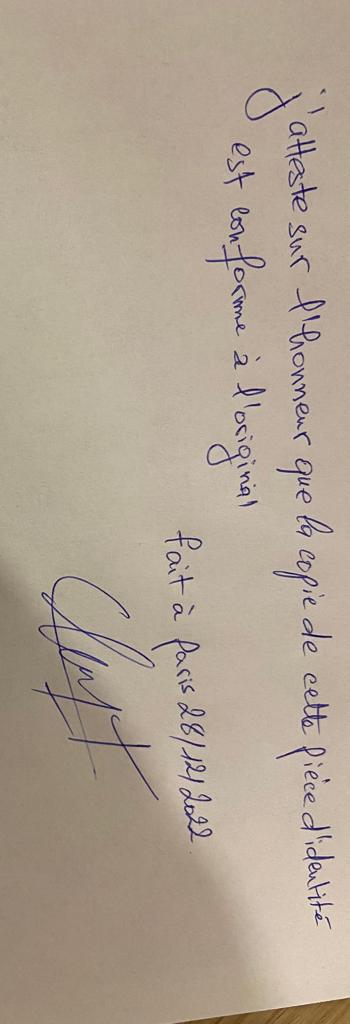 j'atteste sur l'honneur que la copie de cette pièce d'identité
est conforme à l'original
fait à Paris 28/12/2022